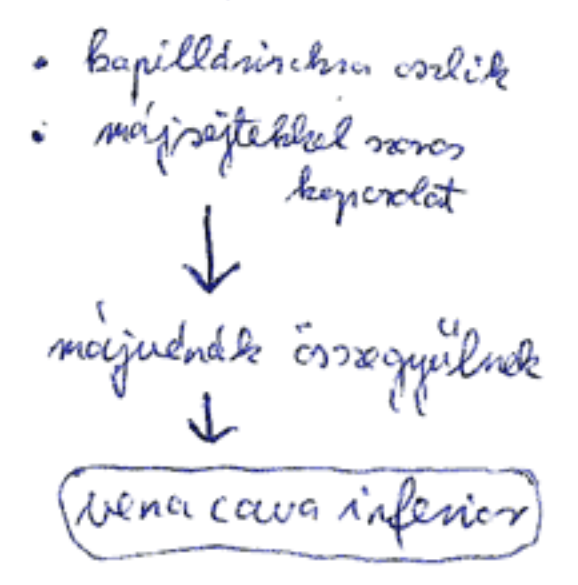 • kapillárisokra oszlik
• májsejtekkel szoros
kapcsolat
↓
májvénák összegyűlnek
↓
vena cava inferior